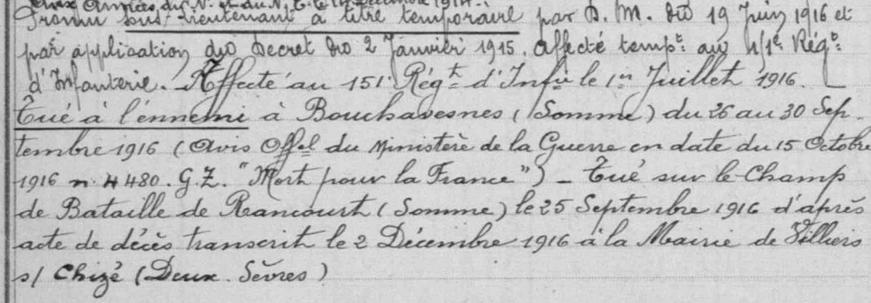 aux Armées du N. et du N.E. Décembre 1914.
Promu sous-lieutenant à titre temporaire par D. M. du 19 Juin 1916 et
par application du Décret du 2 Janvier 1915. Affecté tempt au Régt
d'Infanterie. Affecté au 151e Régt d'Infie le 1er Juillet 1916. _
Tué à l'ennemi à Bouchavesnes (Somme) du 26 au 30 Sep-
tembre 1916 (Avis Offel du Ministère de la Guerre en date du 15 Octobre
1916 n. 4480. G.Z. "Mort pour la France") _ Tué sur le Champ
de Bataille de Rancourt (Somme) le 25 Septembre 1916 d'après
acte de décès transcrit le 2 Décembre 1916 à la Mairie de Villiers
s/ Chizé (Deux-Sèvres)